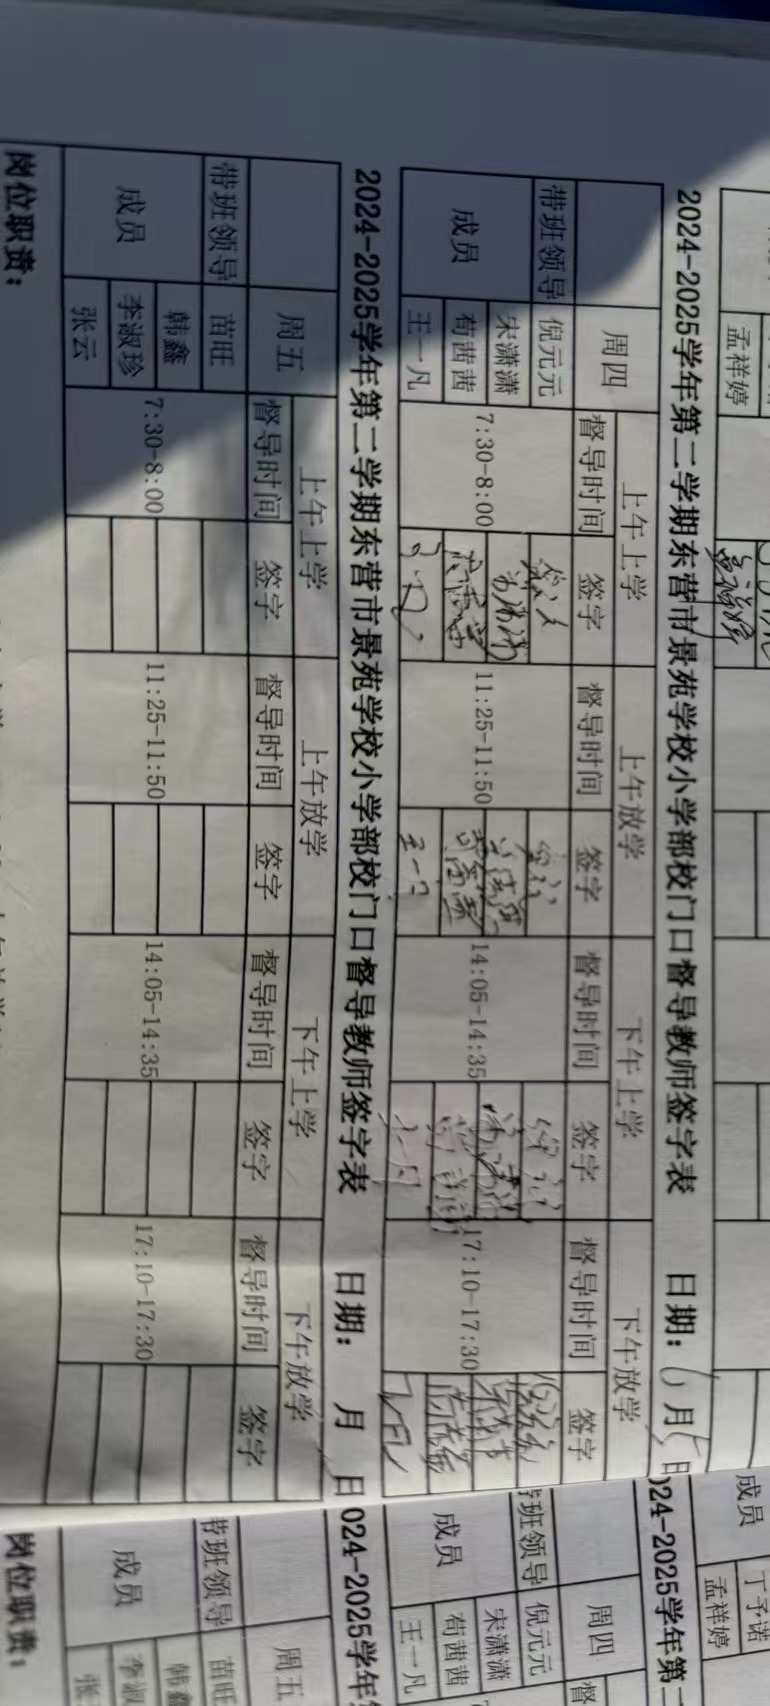 孟祥婷
孟祥婷
2024-2025学年第二学期东营市景苑学校小学部校门口督导教师签字表 日期：6月5日
周四 上午上学 上午放学 下午上学 下午放学
督导时间 签字 督导时间 签字 督导时间 签字 督导时间 签字
带班领导 倪元元
成员 宋潇潇 7:30-8:00 11:25-11:50 14:05-14:35 17:10-17:30
荀茜茜
王一凡 王一凡
2024-2025学年第二学期东营市景苑学校小学部校门口督导教师签字表 日期： 月 日
周五 上午上学 上午放学 下午上学 下午放学
督导时间 签字 督导时间 签字 督导时间 签字 督导时间 签字
带班领导 苗旺
成员 韩鑫 7:30-8:00 11:25-11:50 14:05-14:35 17:10-17:30
李淑珍
张云
岗位职责：
成员 丁予诺
孟祥婷
024-2025学年第
周四 督
带班领导 倪元元
成员 宋潇潇
荀茜茜
王一凡
024-2025学年
周五
带班领导 苗旺
成员 韩鑫
李淑
张
岗位职责：